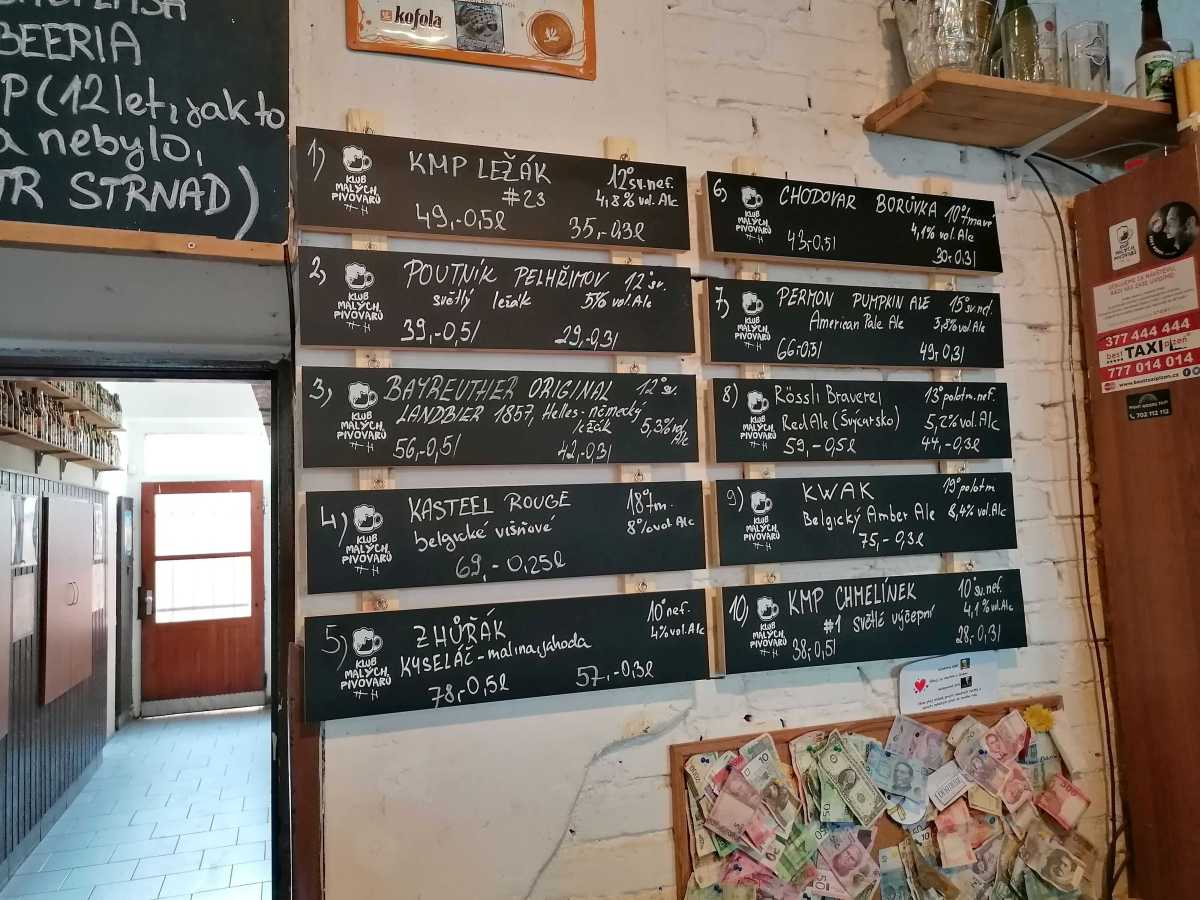 BEERIA
P (12 let, jak to
a nebylo,
TR STRNAD)
kofola
1) KLUB MALÝCH PIVOVARŮ
KMP LEŽÁK 12° sv. nef.
#23 4,8% vol. Alc
49,-0,5l 35,-0,3l
2) KLUB MALÝCH PIVOVARŮ
POUTNÍK PELHŘIMOV 12° sv.
světlý ležák 5% vol. Alc
39,-0,5l 29,-0,3l
3) KLUB MALÝCH PIVOVARŮ
BAYREUTHER ORIGINAL 12° sv.
LANDBIER 1857, Helles-německý
ležák 5,3% vol. Alc
56,-0,5l 42,-0,3l
4) KLUB MALÝCH PIVOVARŮ
KASTEEL ROUGE 18° tm.
belgické višňové 8% vol Alc
69,-0,25l
5) KLUB MALÝCH PIVOVARŮ
ZHŮŘÁK 10° nef.
KYSELÁČ-malina, jahoda 4% vol. Alc
78,-0,5l 57,-0,3l
6) KLUB MALÝCH PIVOVARŮ
CHODOVAR BORŮVKA 10° tmavé
4,1% vol. Alc
43,-0,5l 30,-0,3l
7) KLUB MALÝCH PIVOVARŮ
PERMON PUMPKIN ALE 15° sv. nef.
American Pale Ale 5,8% vol Alc
66,-0,5l 49,-0,3l
8) KLUB MALÝCH PIVOVARŮ
Rössli Brauerei 13° polotm. nef.
Red Ale (Švýcarsko) 5,2% vol Alc
59,-0,5l 44,-0,3l
9) KLUB MALÝCH PIVOVARŮ
KWAK 19° polotm.
Belgický Amber Ale 8,4% vol. Alc
75,-0,3l
10) KLUB MALÝCH PIVOVARŮ
KMP CHMELÍNEK 10° sv. nef.
#1 světlé výčepní 4,1% vol. Alc
38,-0,5l 28,-0,3l
KLUB MALÝCH PIVOVARŮ
377 444 444
best TAXI plzeň
777 014 014
702 112 112